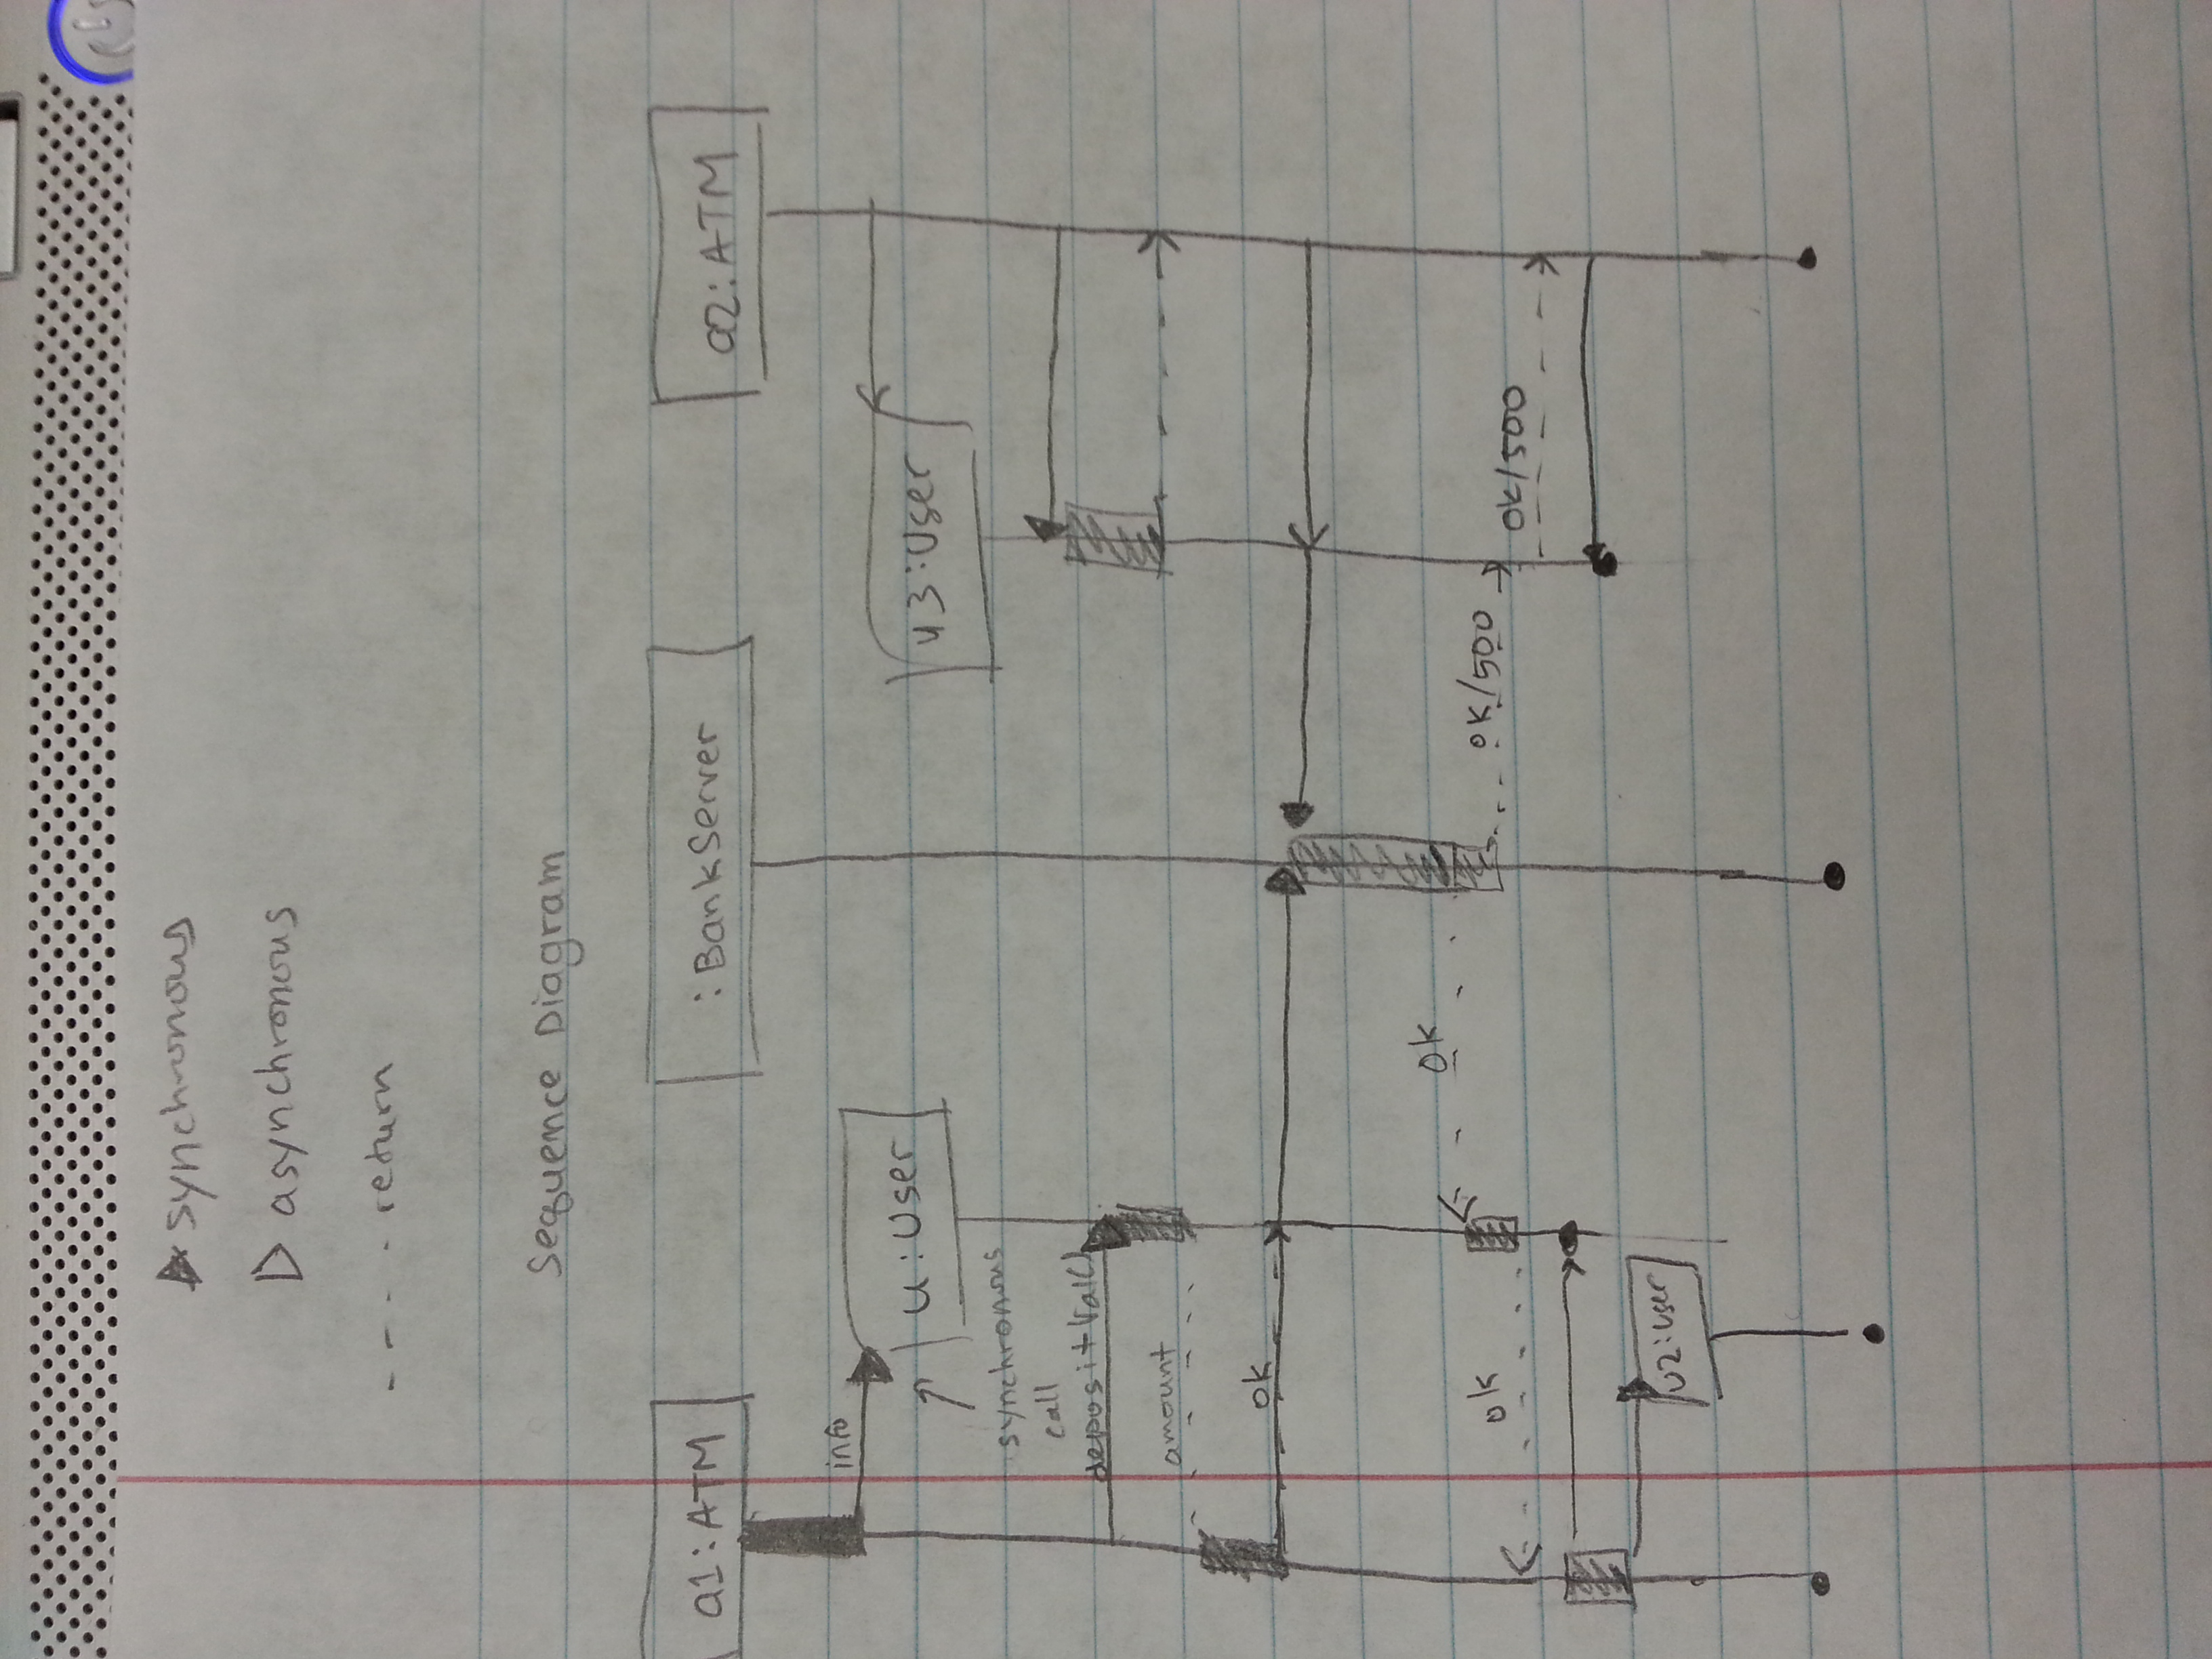 synchronous
asynchronous
return
Sequence Diagram
a1:ATM
:BankServer
a2:ATM
info
u:User
u3:User
synchronous
call
depositVal()
amount
ok
ok
ok
ok/500
ok/500
u2:user